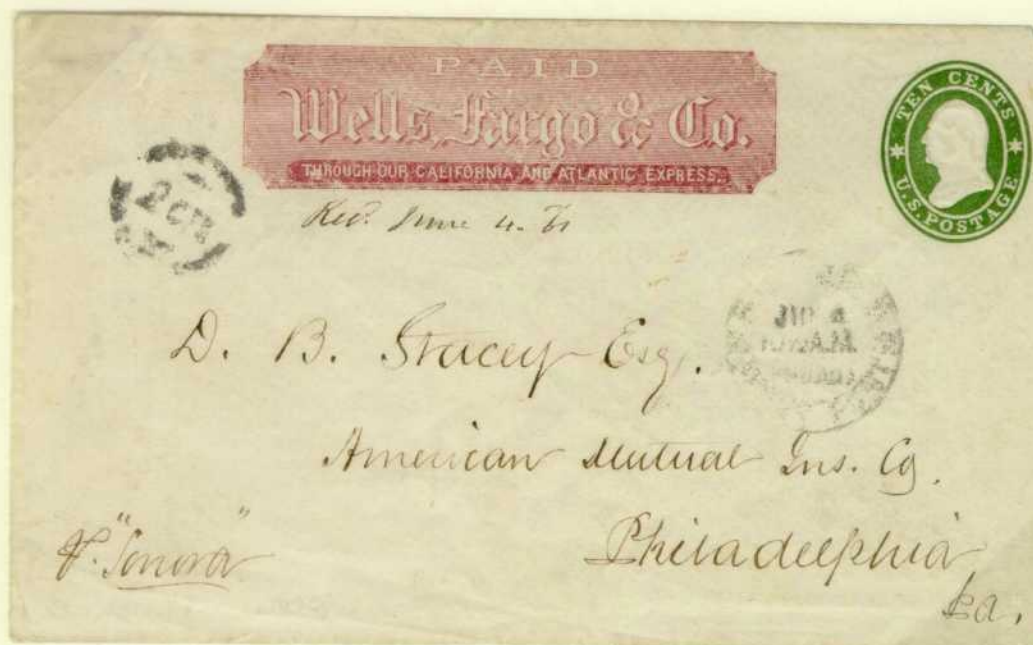 PAID
Wells, Fargo & Co.
THROUGH OUR CALIFORNIA AND ATLANTIC EXPRESS.
TEN CENTS
U.S. POSTAGE
Rec. June 4. 61
D. B. Stacey Esq.
American Mutual Ins. Co.
Philadelphia
Pa.
P. "Sonora"